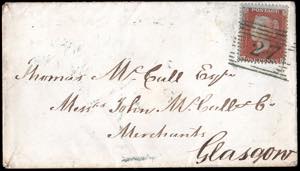 POSTAGE
Thomas McCall Esqre
Messrs John McCall & Co
Merchants
Glasgow